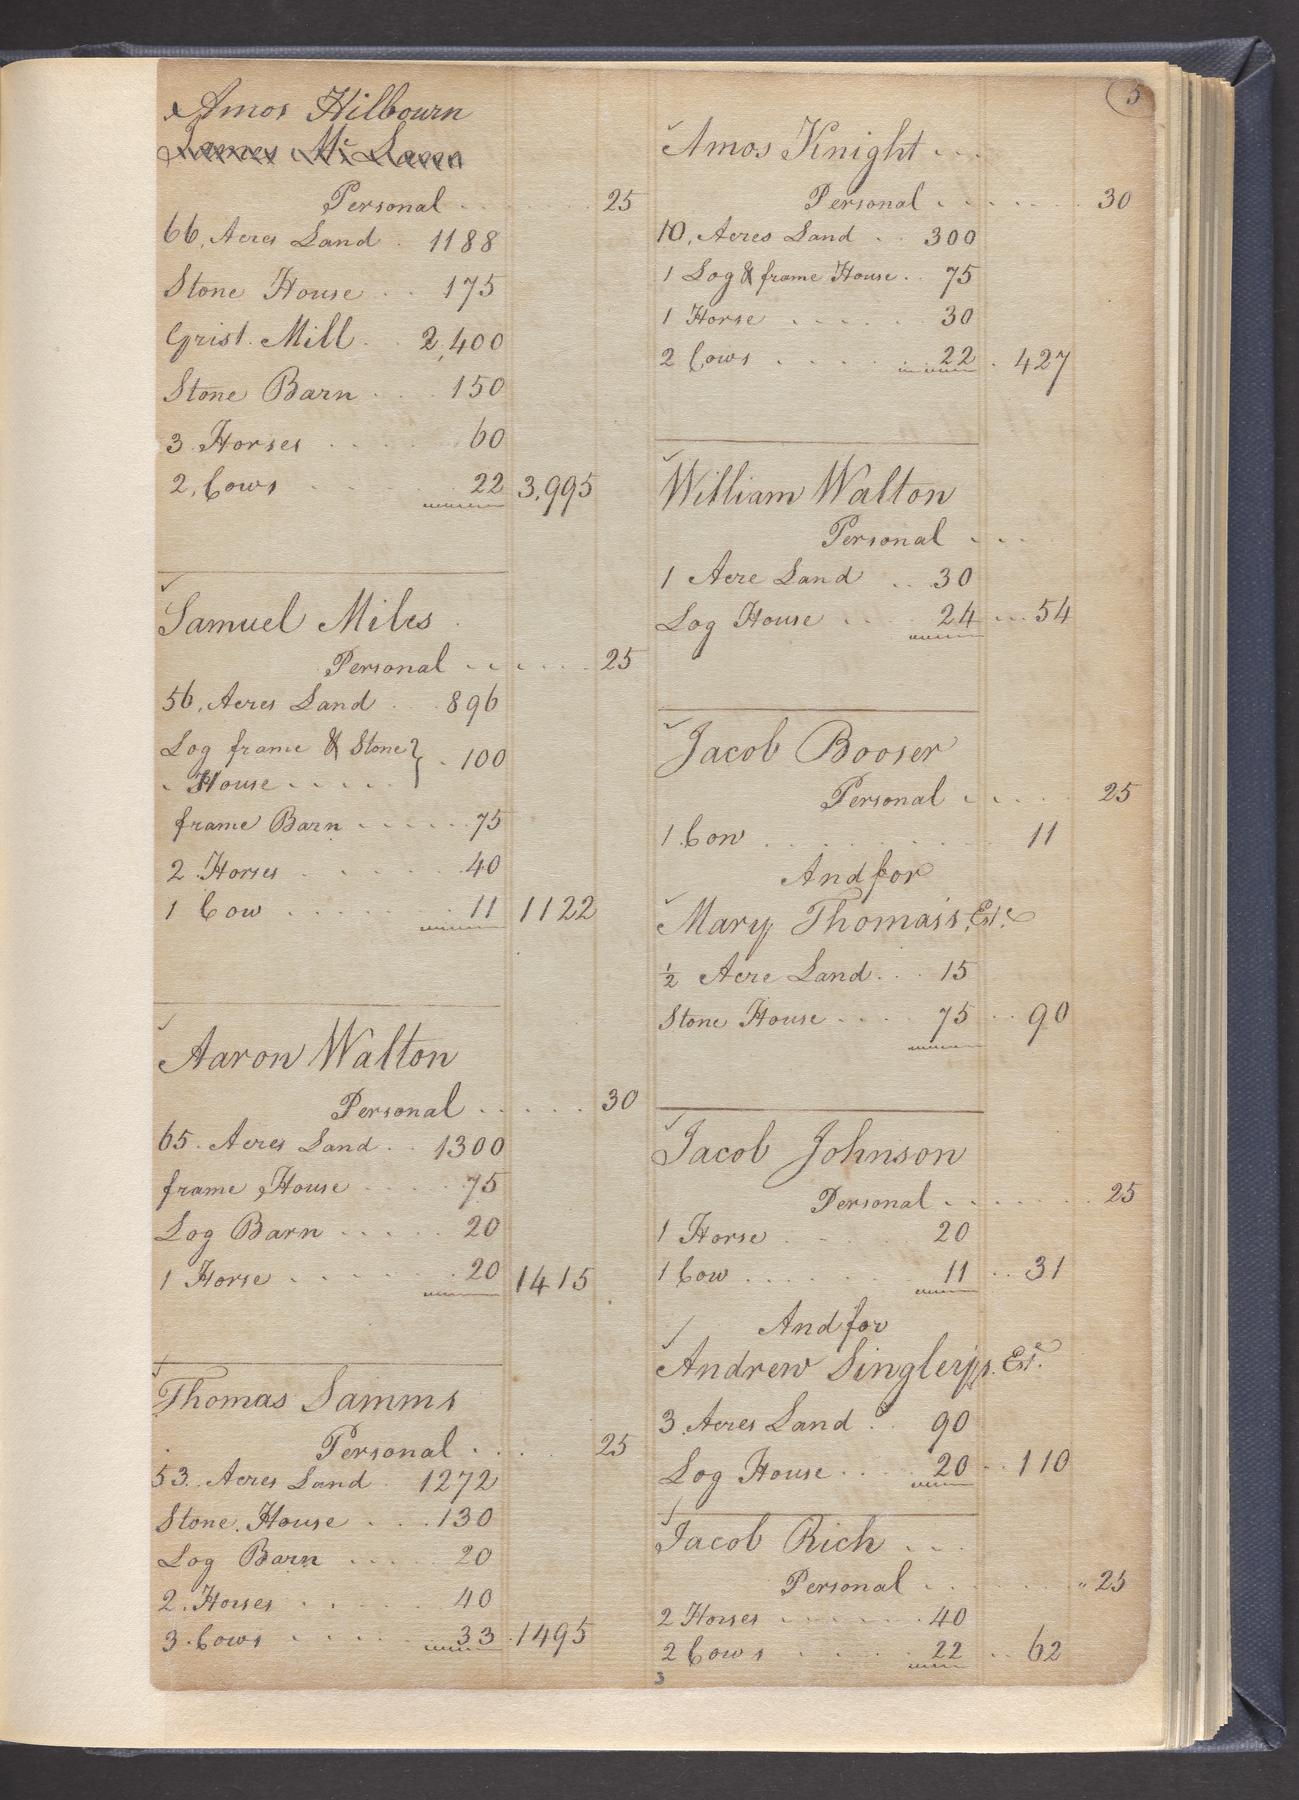 5
Amos Hilbourn
James Mc Laren
Personal 25
66, Acres Land 1188
Stone House 175
Grist Mill 2,400
Stone Barn 150
3 Horses 60
2, Cows 22 3,995
Samuel Miles
Personal 25
56, Acres Land 896
Log frame & Stone } 100
House
frame Barn 75
2 Horses 40
1 Cow 11 1122
Aaron Walton
Personal 30
65 Acres Land 1300
frame House 75
Log Barn 20
1 Horse 20 1415
Thomas Samms
Personal 25
53 Acres Land 1272
Stone House 130
Log Barn 20
2 Horses 40
3 Cows 33 1495
Amos Knight
Personal 30
10, Acres Land 300
1 Log & frame House 75
1 Horse 30
2 Cows 22 427
William Walton
Personal
1 Acre Land 30
Log House 24 54
Jacob Booser
Personal 25
1 Cow 11
And for
Mary Thomas's Este
½ Acre Land 15
Stone House 75 90
Jacob Johnson
Personal 25
1 Horse 20
1 Cow 11 31
And for
Andrew Singley's Este
3 Acres Land 90
Log House 20 110
Jacob Rich
Personal 25
2 Horses 40
2 Cows 22 62
3